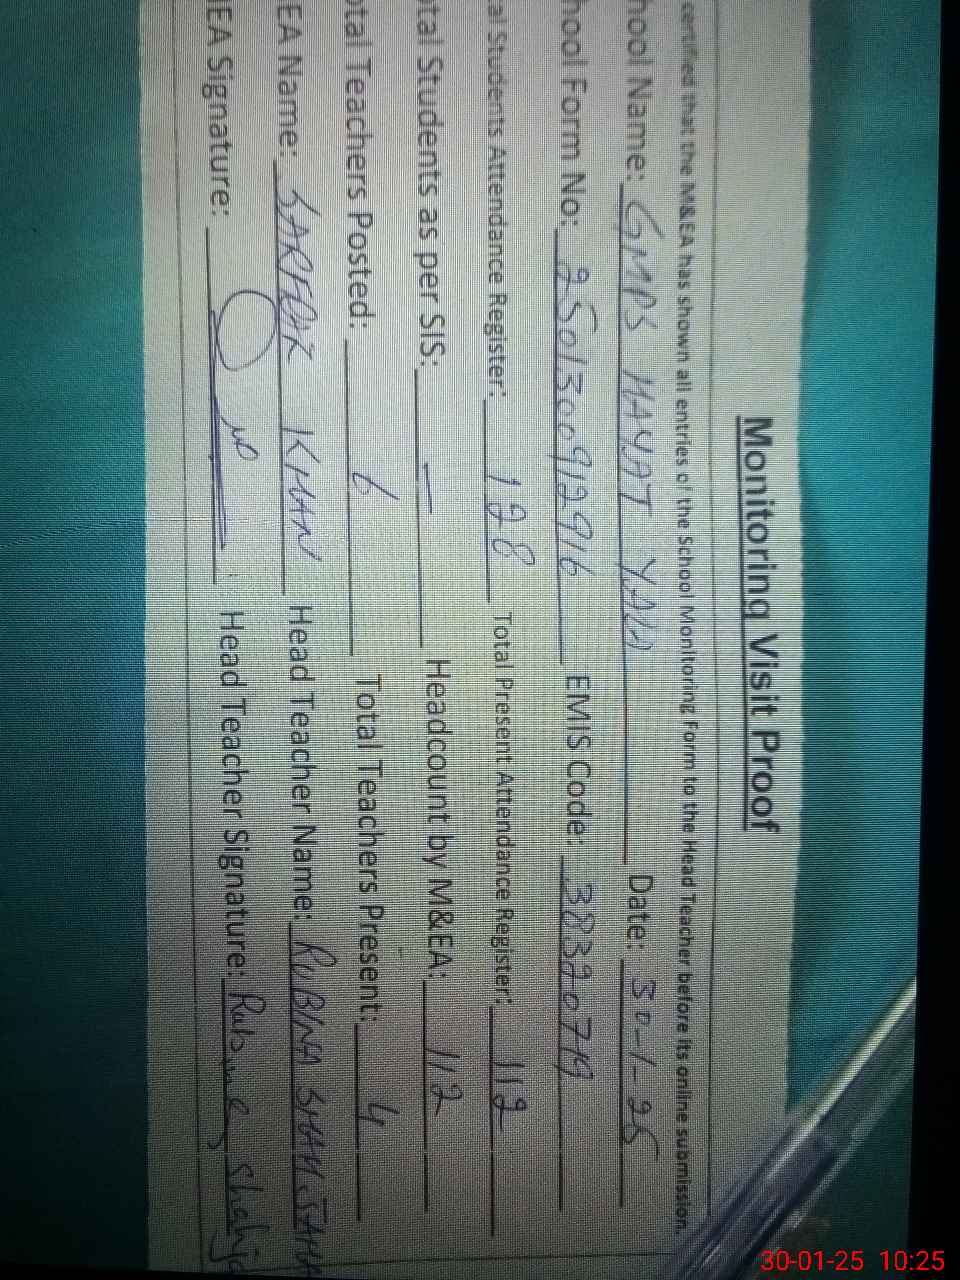 Monitoring Visit Proof
certified that the M&EA has shown all entries of the School Monitoring Form to the Head Teacher before its online submission.
hool Name: GMPS HAYAT Date: 30-1-25
hool Form No: 2501300912916 EMIS Code: 38320719
al Students Attendance Register: 128 Total Present Attendance Register: 112
otal Students as per SIS: — Headcount by M&EA: 112
otal Teachers Posted: 6 Total Teachers Present: 4
EA Name: SARFRAZ KHAN Head Teacher Name: RUBINA SHAH
EA Signature: Head Teacher Signature:
30-01-25 10:25